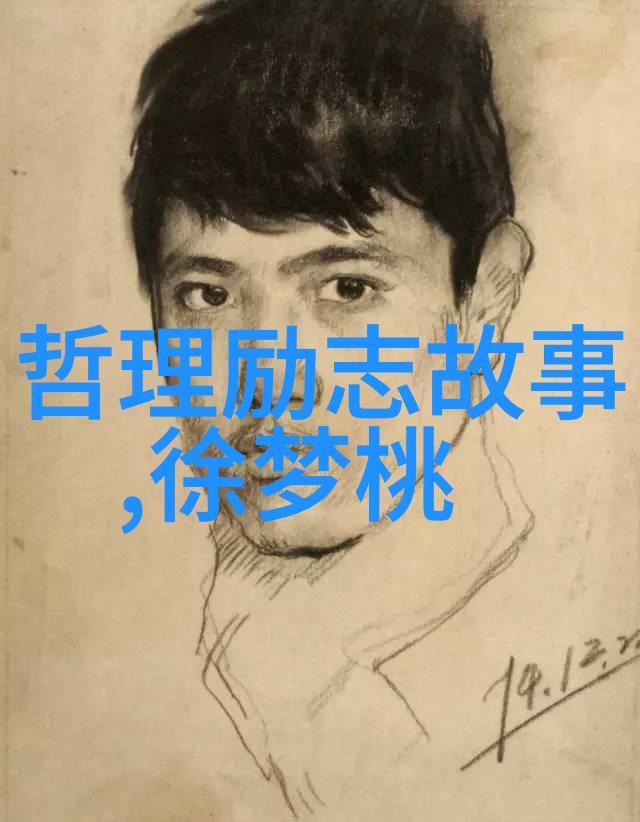 哲理励志故事
,徐梦桃
14.12.2